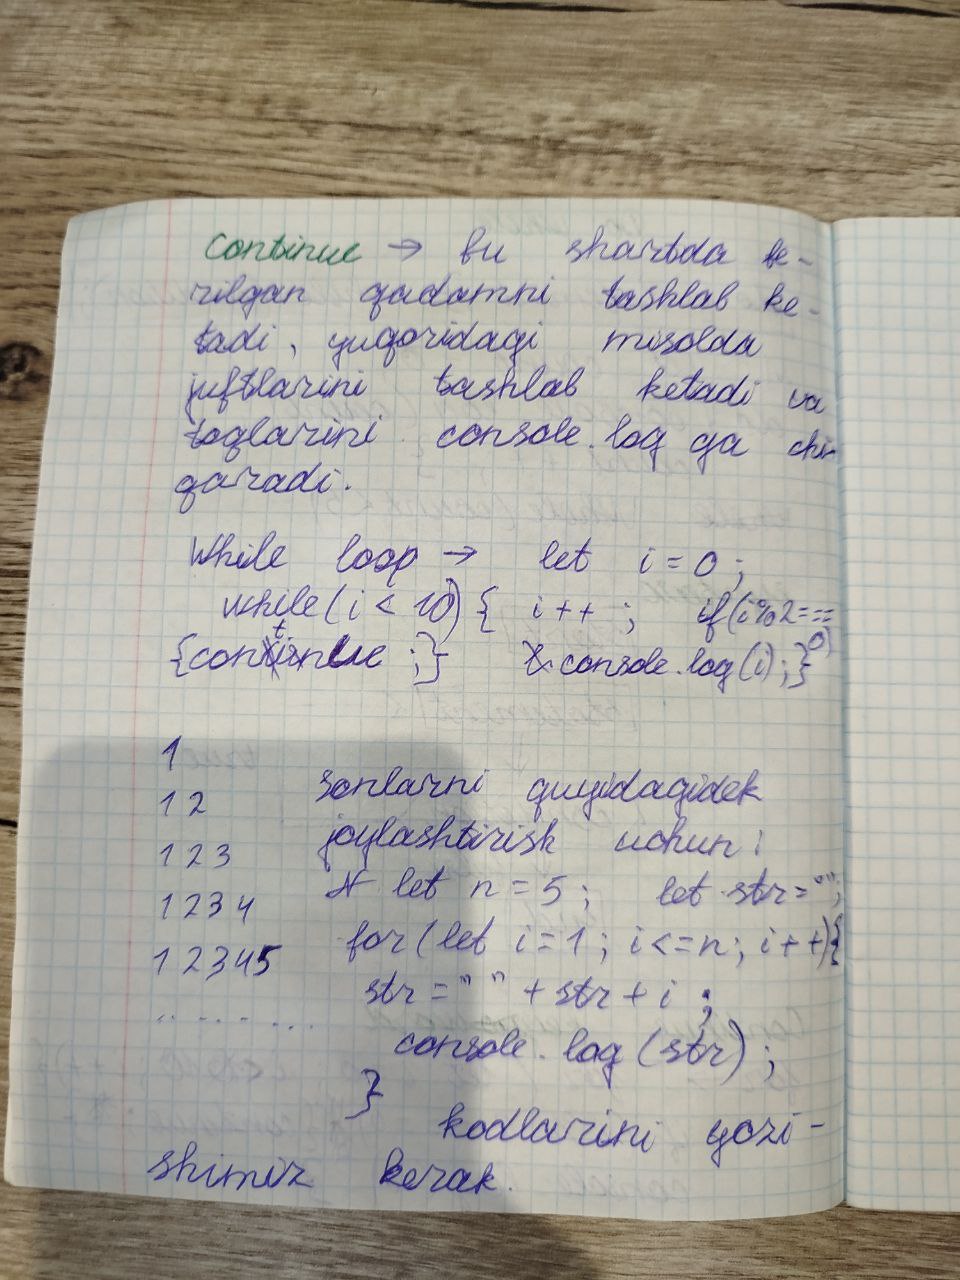 continue → bu shartda be-
rilgan qadamni tashlab ke-
tadi, yuqoridagi misolda
juftlarini tashlab ketadi va
toqlarini console.log ga chi-
qaradi.
While loop → let i = 0;
while (i < 10) { i++; if (i%2 == 0)
{continue;} console.log(i);}
1
1 2 sonlarni quyidagidek
1 2 3 joylashtirish uchun:
1 2 3 4 let n = 5; let str = "";
1 2 3 4 5 for (let i = 1; i <= n; i++) {
str = " " + str + i;
..... console.log(str);
}
kodlarini yozi-
shimiz kerak.